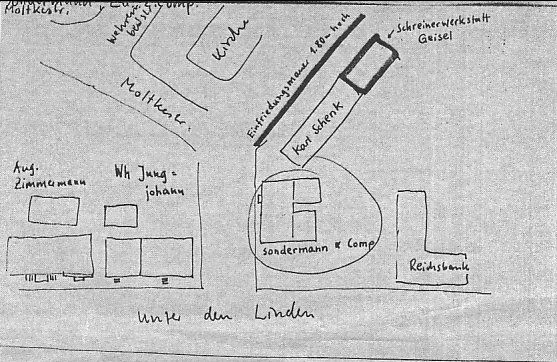 Moltkestr.
Comp.
Kirche
Moltkestr.
Einfriedungsmauer 1.80m hoch
Schreinerwerkstatt
Geisel
Karl Schenk
Aug.
Zimmermann
Wh Jung=
johann
Sondermann & Comp
Reichsbank
Unter den Linden